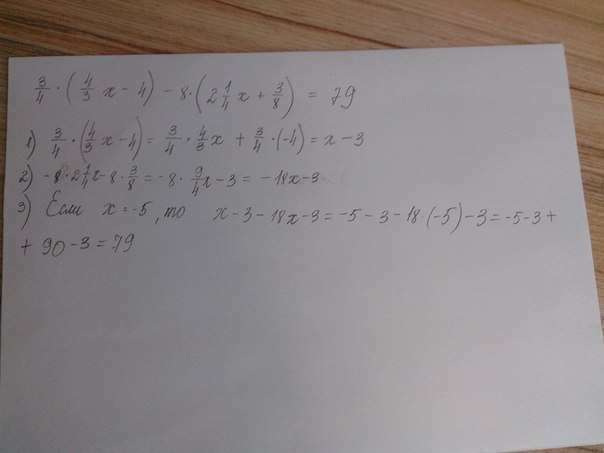 3/4 · (4/3 x - 4) - 8 · (2 1/4 x + 3/8) = 79
1) 3/4 · (4/3 x - 4) = 3/4 · 4/3 x + 3/4 · (-4) = x - 3
2) -8 · 2 1/4 x - 8 · 3/8 = -8 · 9/4 x - 3 = -18x - 3
3) Если x = -5, то x - 3 - 18x - 3 = -5 - 3 - 18 (-5) - 3 = -5 - 3 +
+ 90 - 3 = 79